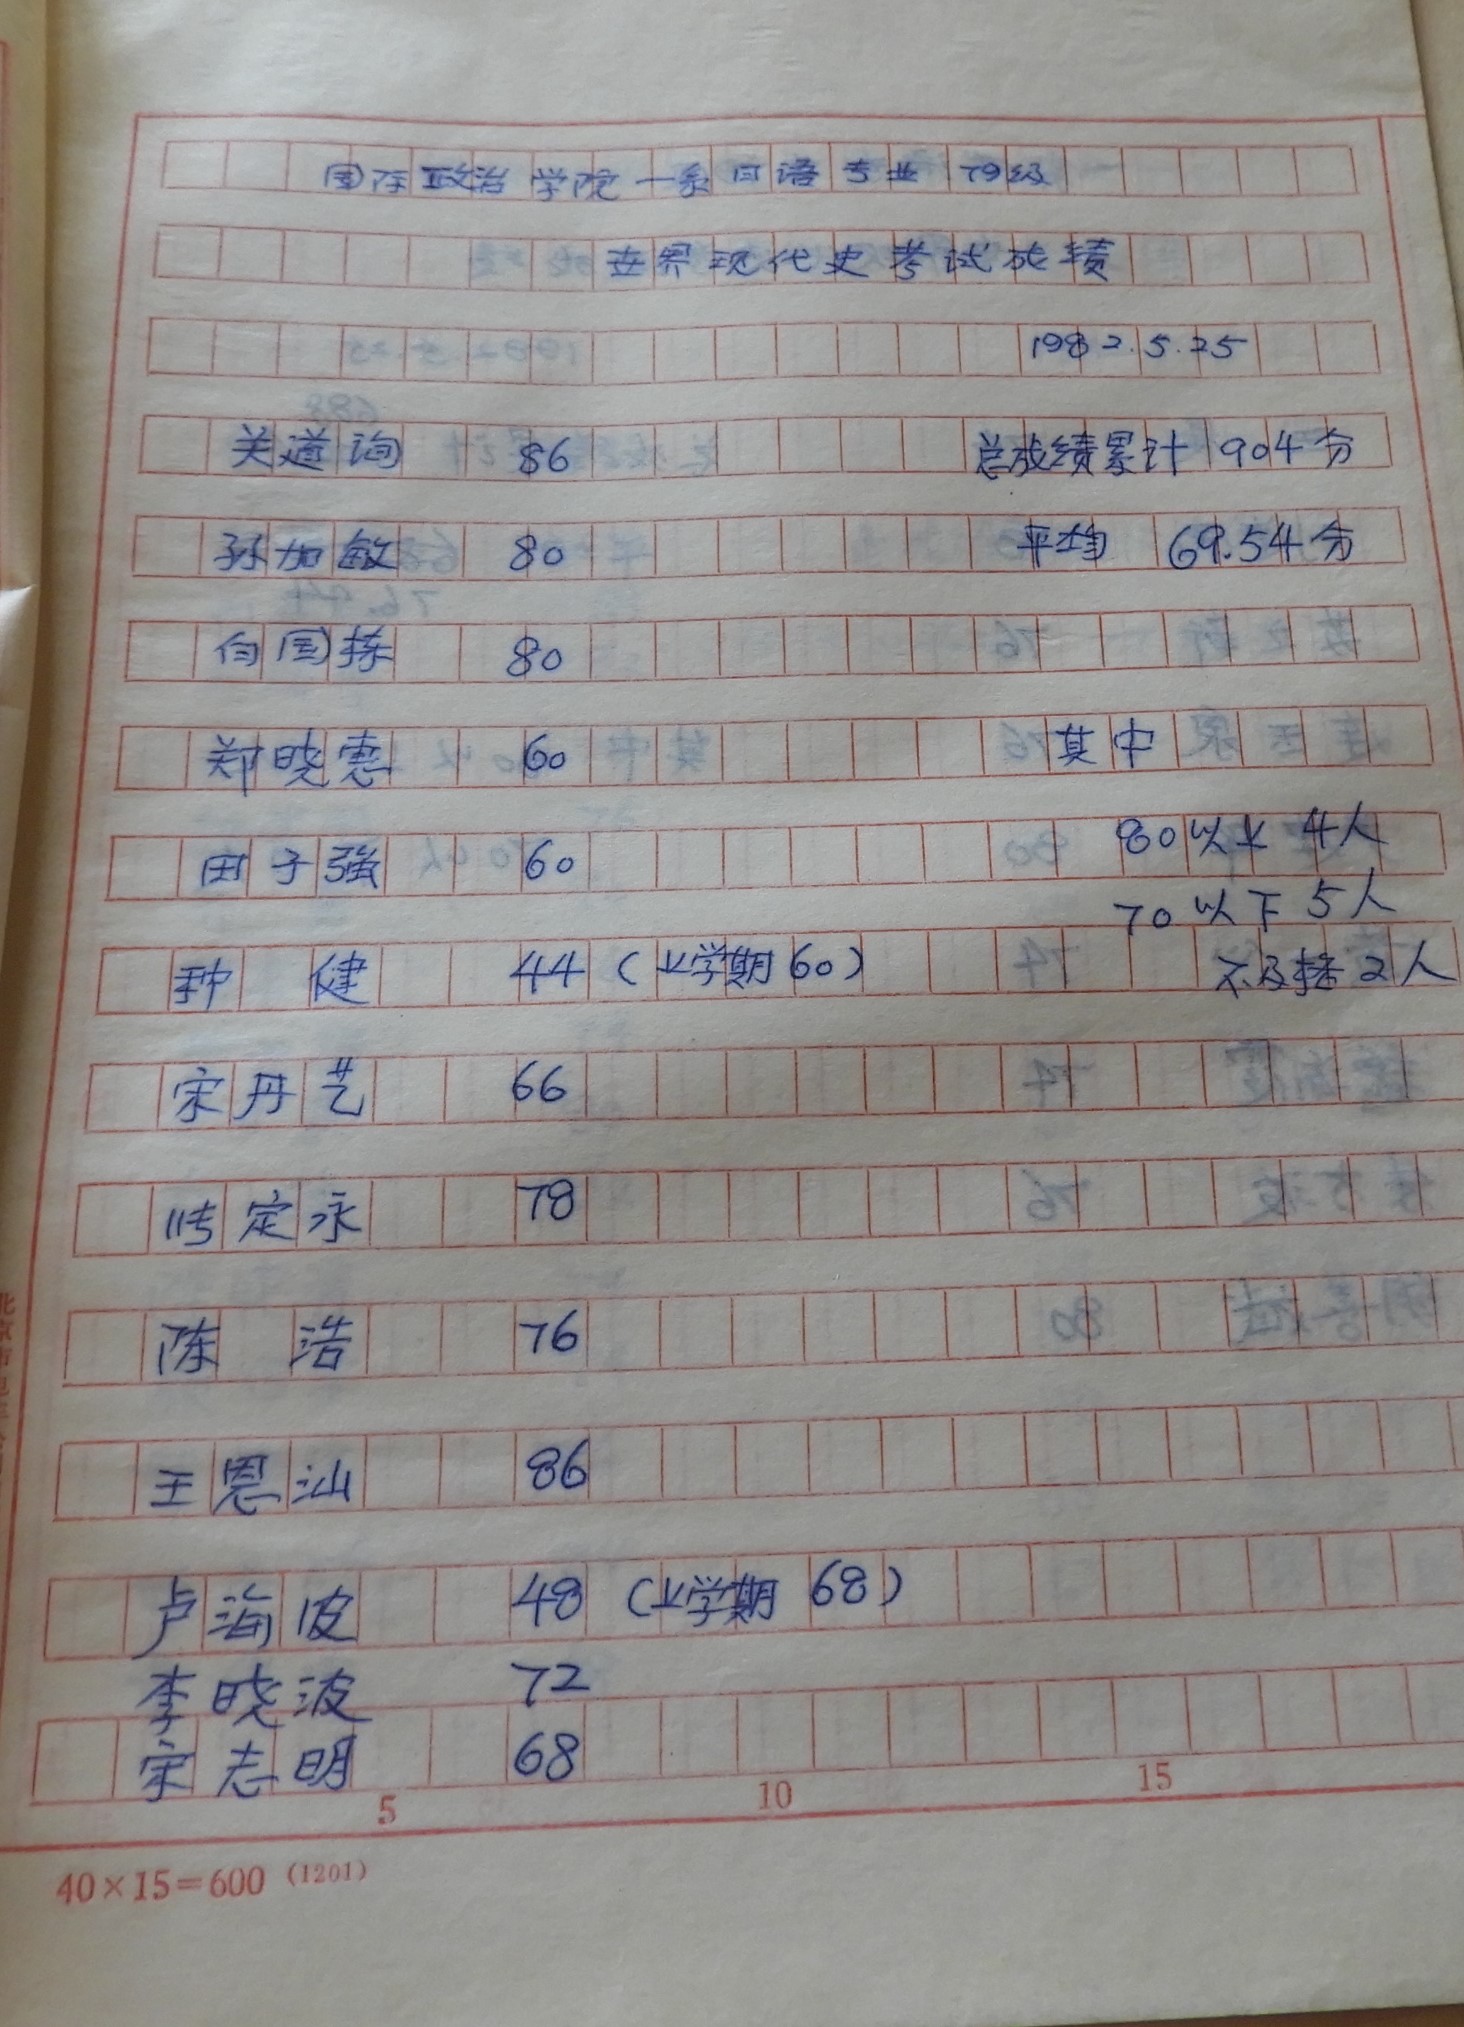 国际政治学院一系日语专业 79级
世界现代史考试成绩
1982.5.25
关道询 86 总成绩累计 904分
孙加敏 80 平均 69.54分
向国栋 80
郑晓惠 60 其中
田子强 60 80以上 4人
70以下 5人
种健 44（上学期60） 不及格2人
宋丹艺 66
定永 78
陈浩 76
王恩汕 86
卢海波 48（上学期 68）
李晓波 72
宋志明 68
5 10 15
40×15=600 (1201)